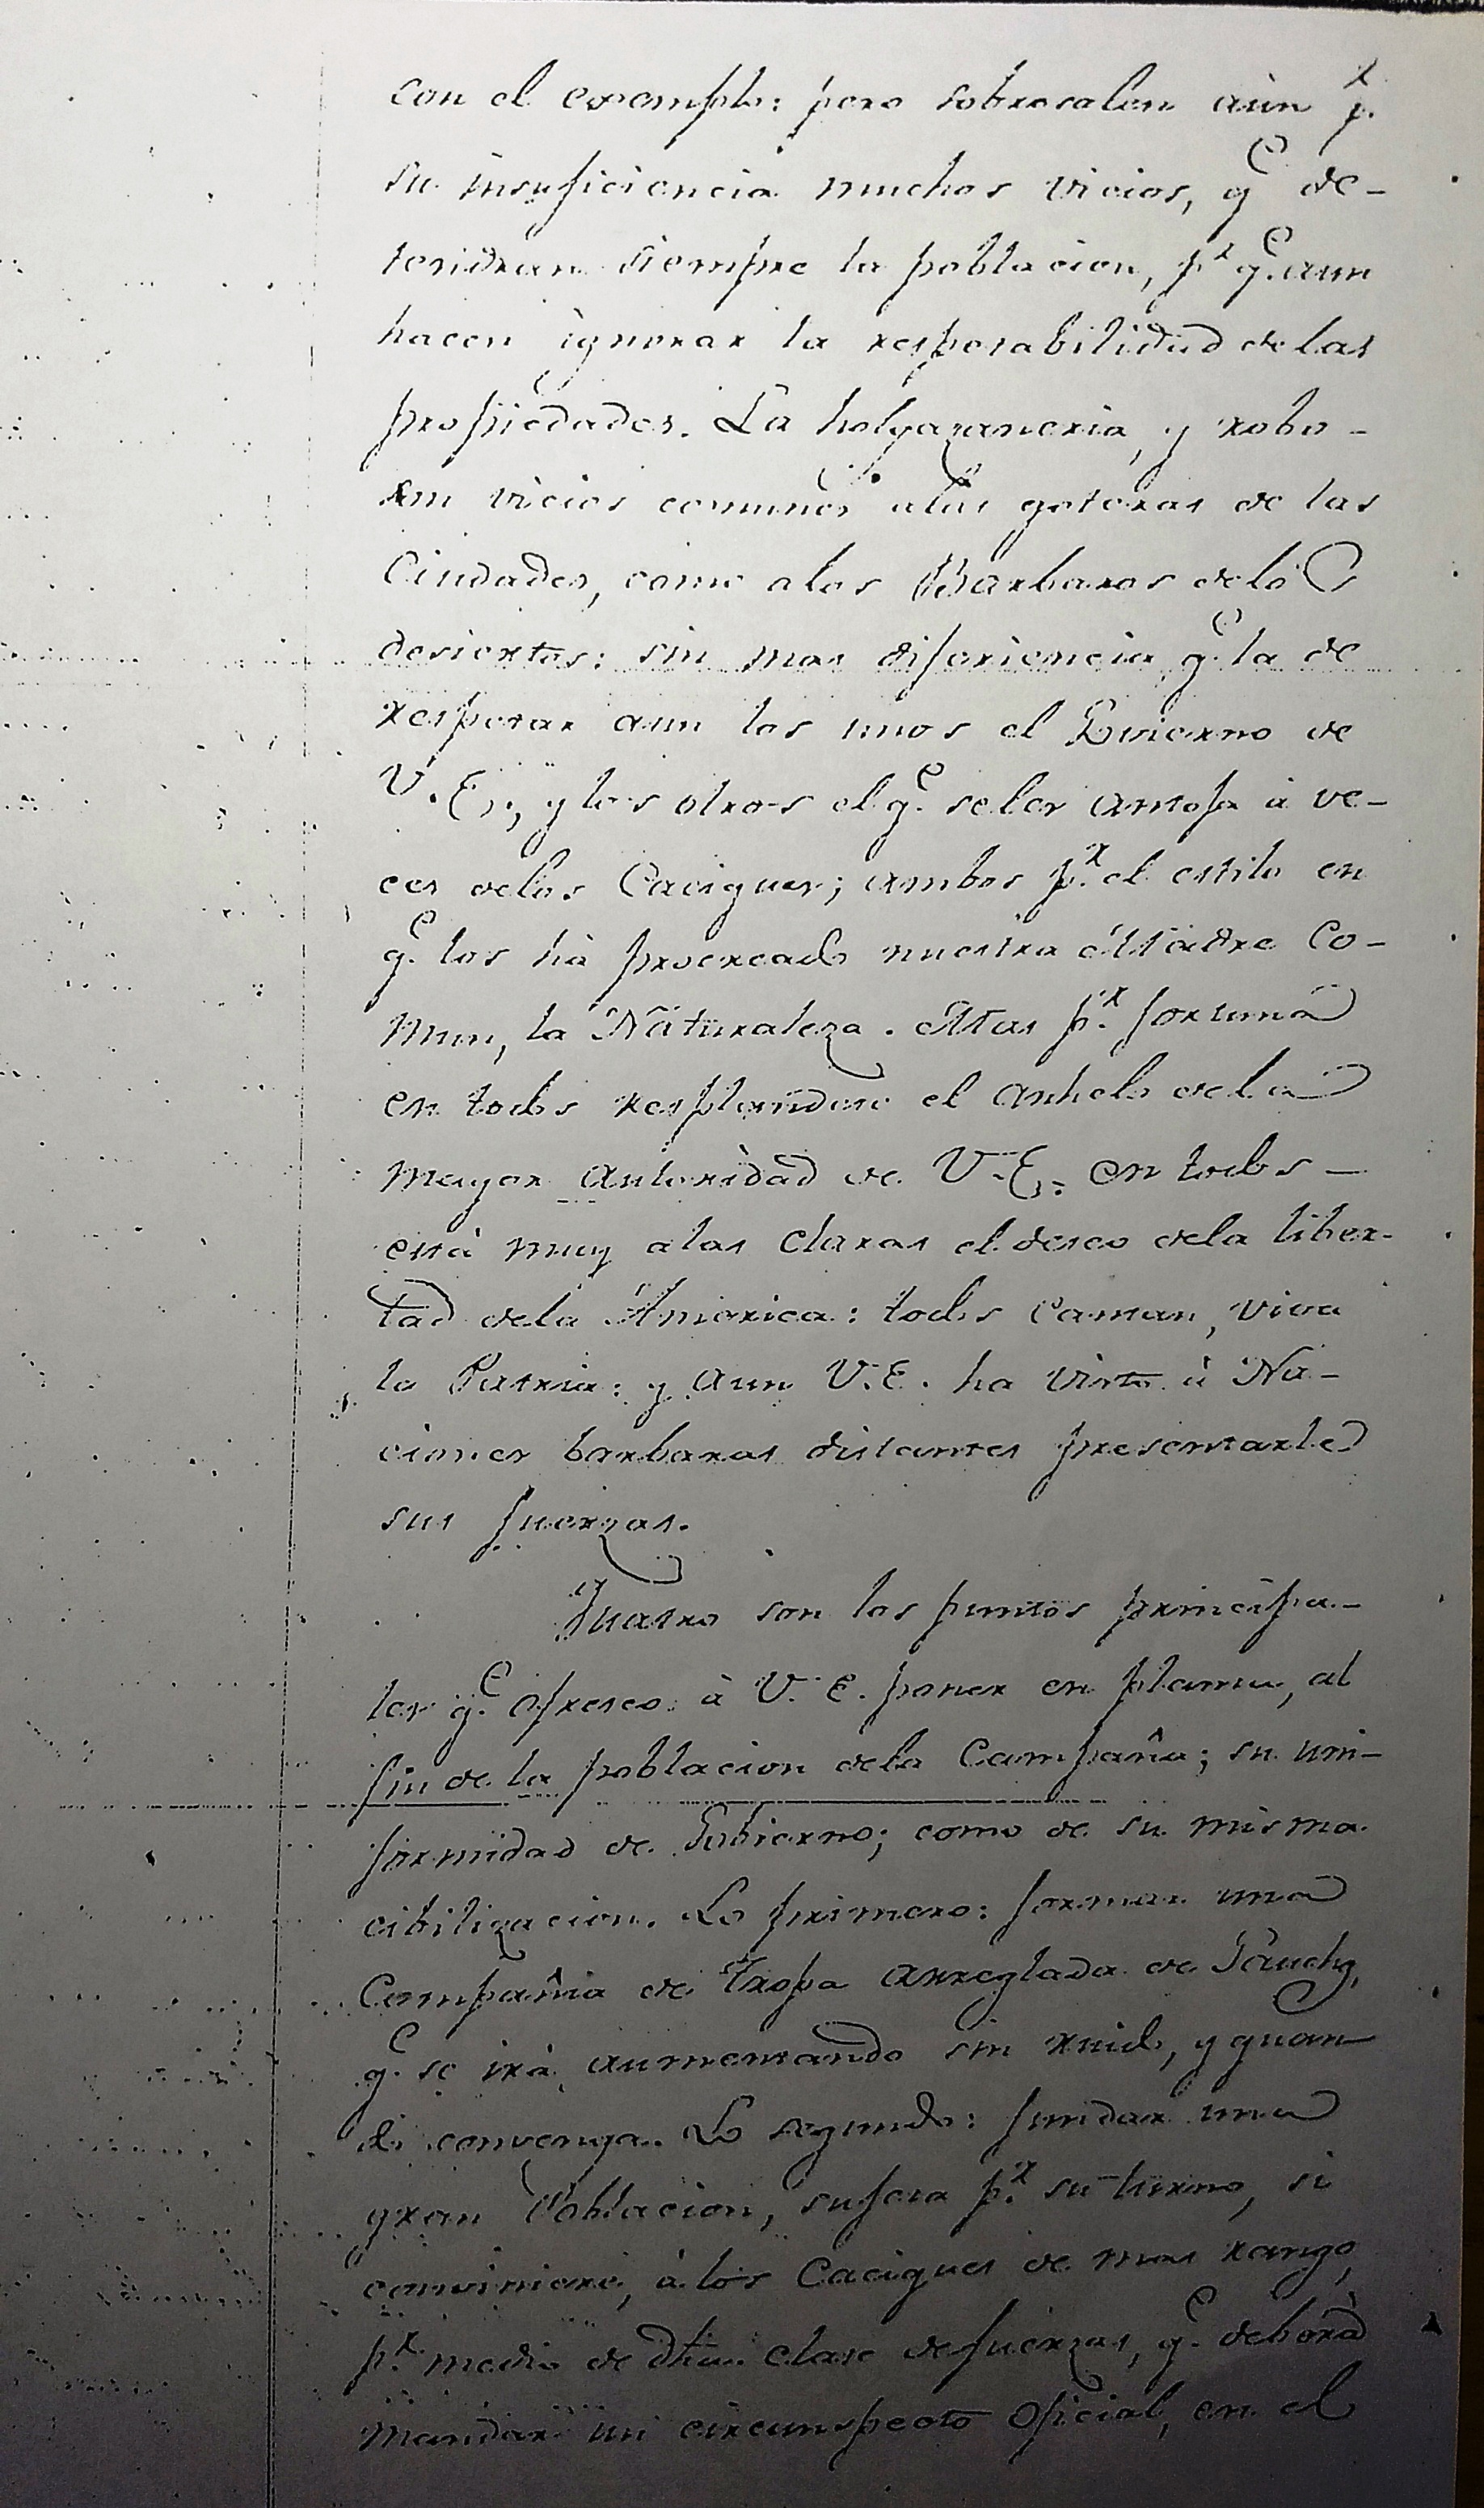 con el exemplo: pero sobresalen aùn p.r
su insuficiencia muchos vicios, q.e de-
tendran siempre la poblacion, p.r q.e aun
hacen ignorar la respetabilidad de las
propiedades. La holgazaneria, y robo -
son vicios comunes alas goteras de las
Ciudades, como alos Barbaros delos
desiertos: sin mas diferiencia, q.e la de
respetar aun los unos el Govierno de
V.E., y los otros el q.e seles antoja à ve-
ces delos Caciques; ambos p.r el estilo en
q.e los hà procreado nuestra Madre Co-
mun, la Naturaleza. Mas p.r fortuna
en todos resplandece el anhelo dela
mayor autoridad de V.E. en todos -
està muy alas claras el deseo dela liber-
tad dela America: todos caman, viva
la Patria: y aun V.E. ha visto à Na-
ciones barbaras distantes presentarle
sus fuerzas.
Quatro son los puntos principa-
les q.e ofresco à V.E. poner en planta, al
fin de la poblacion dela Campaña; su uni-
formidad de Gobierno; como de su misma
cibilizacion. Lo primero: formar una
Compañia de Tropa arreglada de Gauchos,
q.e se irà aumentando sin ruido, y quan
do convenga. Lo segundo: fundar una
gran Poblacion, sugeta p.r su turno, si
conviniere, à los Caciques de mas rango,
p.r medio de dha. clase de fuerzas, q.e deberà
mandar un circunspecto Oficial, en el